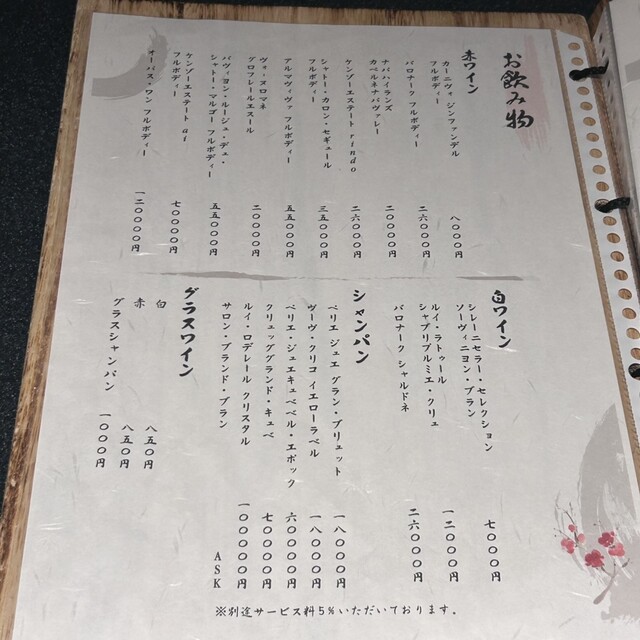 お飲み物
赤ワイン
カーニヴォ ジンファンデル
フルボディー 八〇〇〇円
バロナーク フルボディー 二六〇〇〇円
ナパハイランズ
カベルネ・ナパヴァレー 二〇〇〇〇円
ケンゾーエステート rindo 二六〇〇〇円
シャトー・カロン・セギュール
フルボディー 三五〇〇〇円
アルマヴィヴァ フルボディー 五五〇〇〇円
ヴォーヌロマネ
グロフレールエスール 二〇〇〇〇円
パヴィヨン・ルージュ・デュ・
シャトー・マルゴー フルボディー 五五〇〇〇円
ケンゾーエステート ai
フルボディー 七〇〇〇〇円
オーパス・ワン フルボディー 一二〇〇〇〇円
白ワイン
シレーニセラー・セレクション
ソーヴィニヨン・ブラン 七〇〇〇円
ルイ・ラトゥール
シャブリプルミエ・クリュ 一二〇〇〇円
バロナーク シャルドネ 二六〇〇〇円
シャンパン
ペリエ ジュエ グラン・ブリュット 一八〇〇〇円
ヴーヴ・クリコ イエローラベル 一八〇〇〇円
ペリエ・ジュエキュベベル・エポック 六〇〇〇〇円
クリュッググランド・キュベ 七〇〇〇〇円
ルイ・ロデレール クリスタル 一〇〇〇〇〇円
サロン・ブランド・ブラン ASK
グラスワイン
白 八五〇円
赤 八五〇円
グラスシャンパン 一〇〇〇円
※別途サービス料5%いただいております。